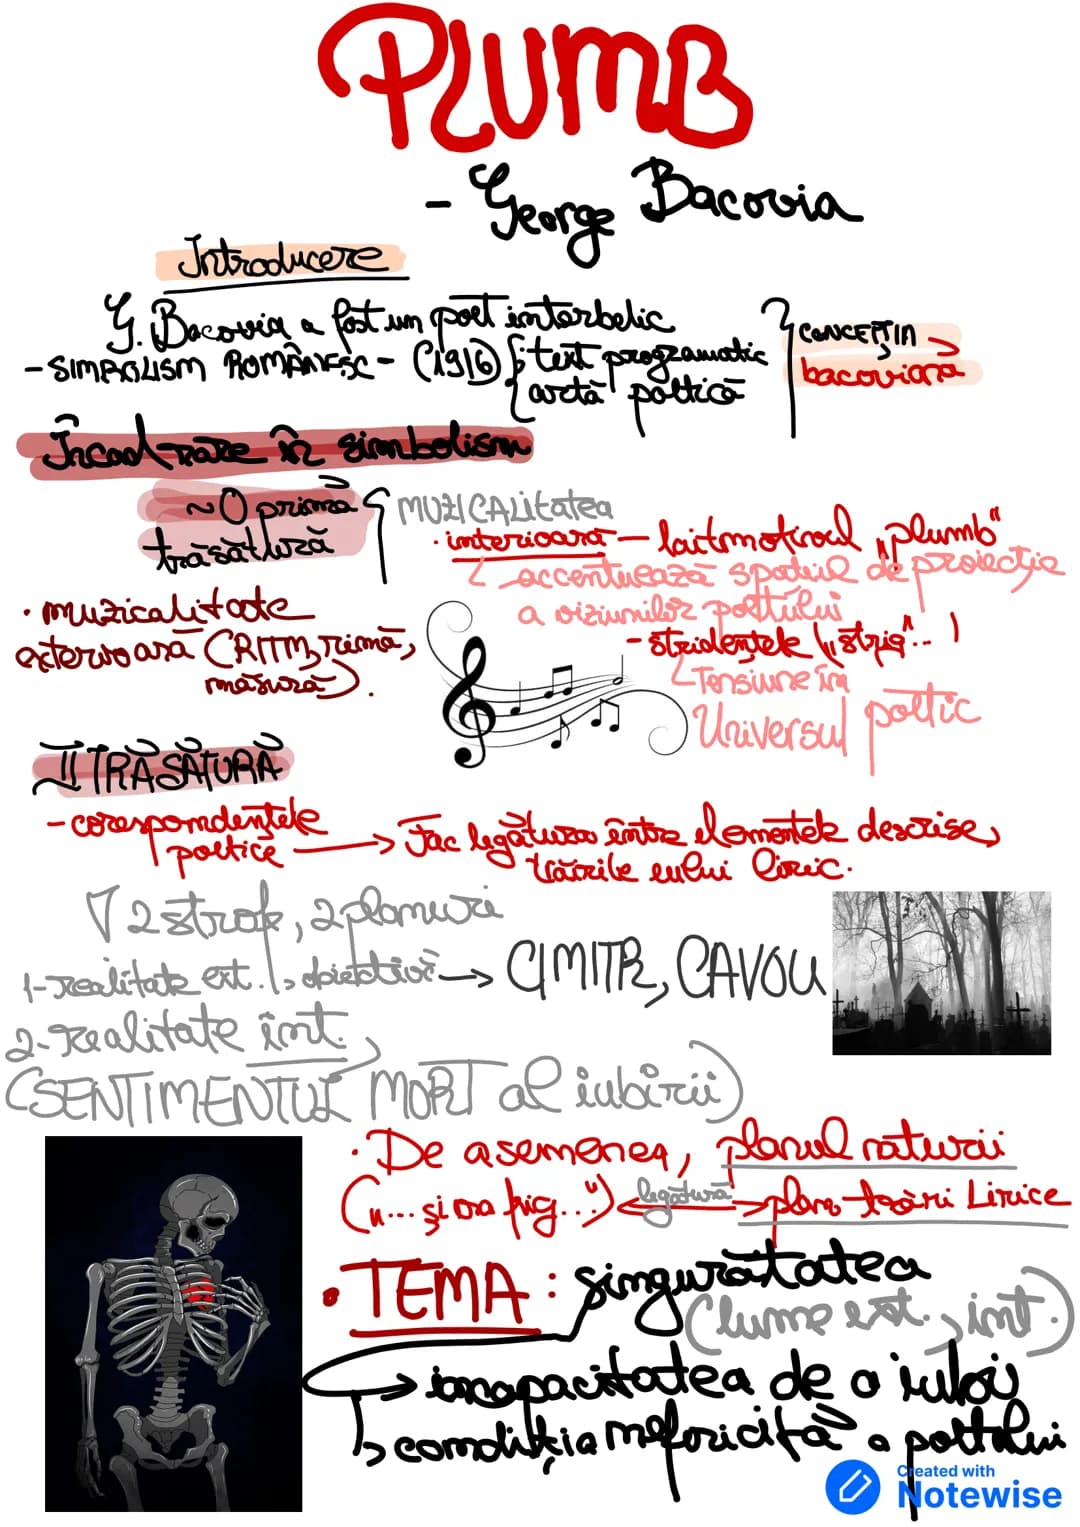 PLUMB
- George Bacovia
Introducere
G. Bacovia a fost un poet interbelic
- SIMBOLISM ROMÂNESC - (1916) { text programatic
artă poetică
CONCEPȚIA
bacoviană
Încadrare în simbolism
~ O primă
trăsătură
MUZICALITATEA
· interioară — laitmotivul „plumb"
accentuează spațiul de proiecție
a viziunilor poetului
- stridențele („strig"... )
Tensiune în
Universul poetic
· muzicalitate
exterioară (RITM, rimă,
măsură).
II TRĂSĂTURĂ
- corespondențele
poetice → Fac legătura între elementele descrise,
trăirile eului liric.
2 strofe, 2 planuri
1- realitate ext. obiectivă → CIMITR, CAVOU
2- realitate int.
(SENTIMENTUL MORT al iubirii)
· De asemenea, planul naturii
(„... și era frig...") legătură plan trăiri Lirice
• TEMA : singurătatea
(lume ext., int.)
→ incapacitatea de a iubi
condiția nefericită a poetului
Created with
Notewise